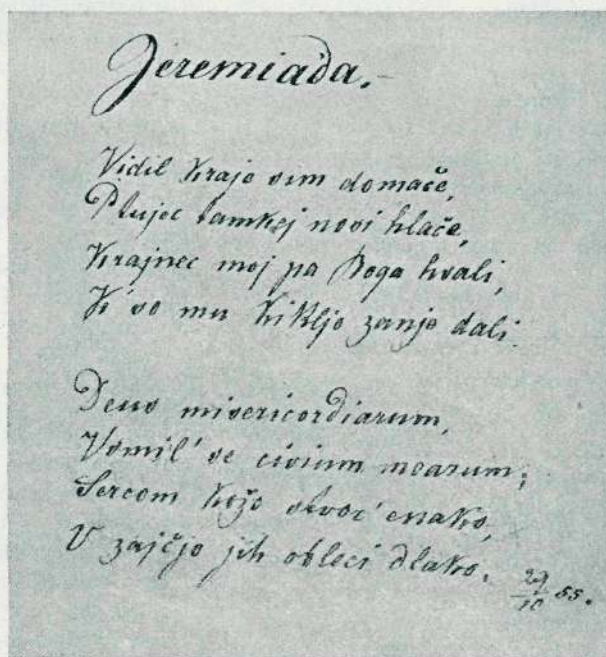 Jeremiada.
Vidil kraje sim domače,
Ptujec tamkej nosi hlače,
Krajnec moj pa Boga hvali,
Ki so mu kikljo zanjo dali.
Deus misericordiarum,
Vsmil' se civium mearum;
Sercom kožo stvor' enako,
V zajčjo jih obleci dlako.
29/10 55.